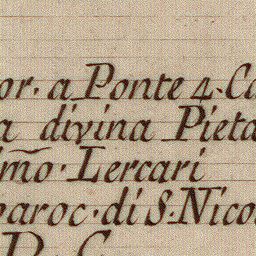 or. a Ponte 4. Ca
a divina Pieta
imõ. Lercari
paroc. di S. Nico